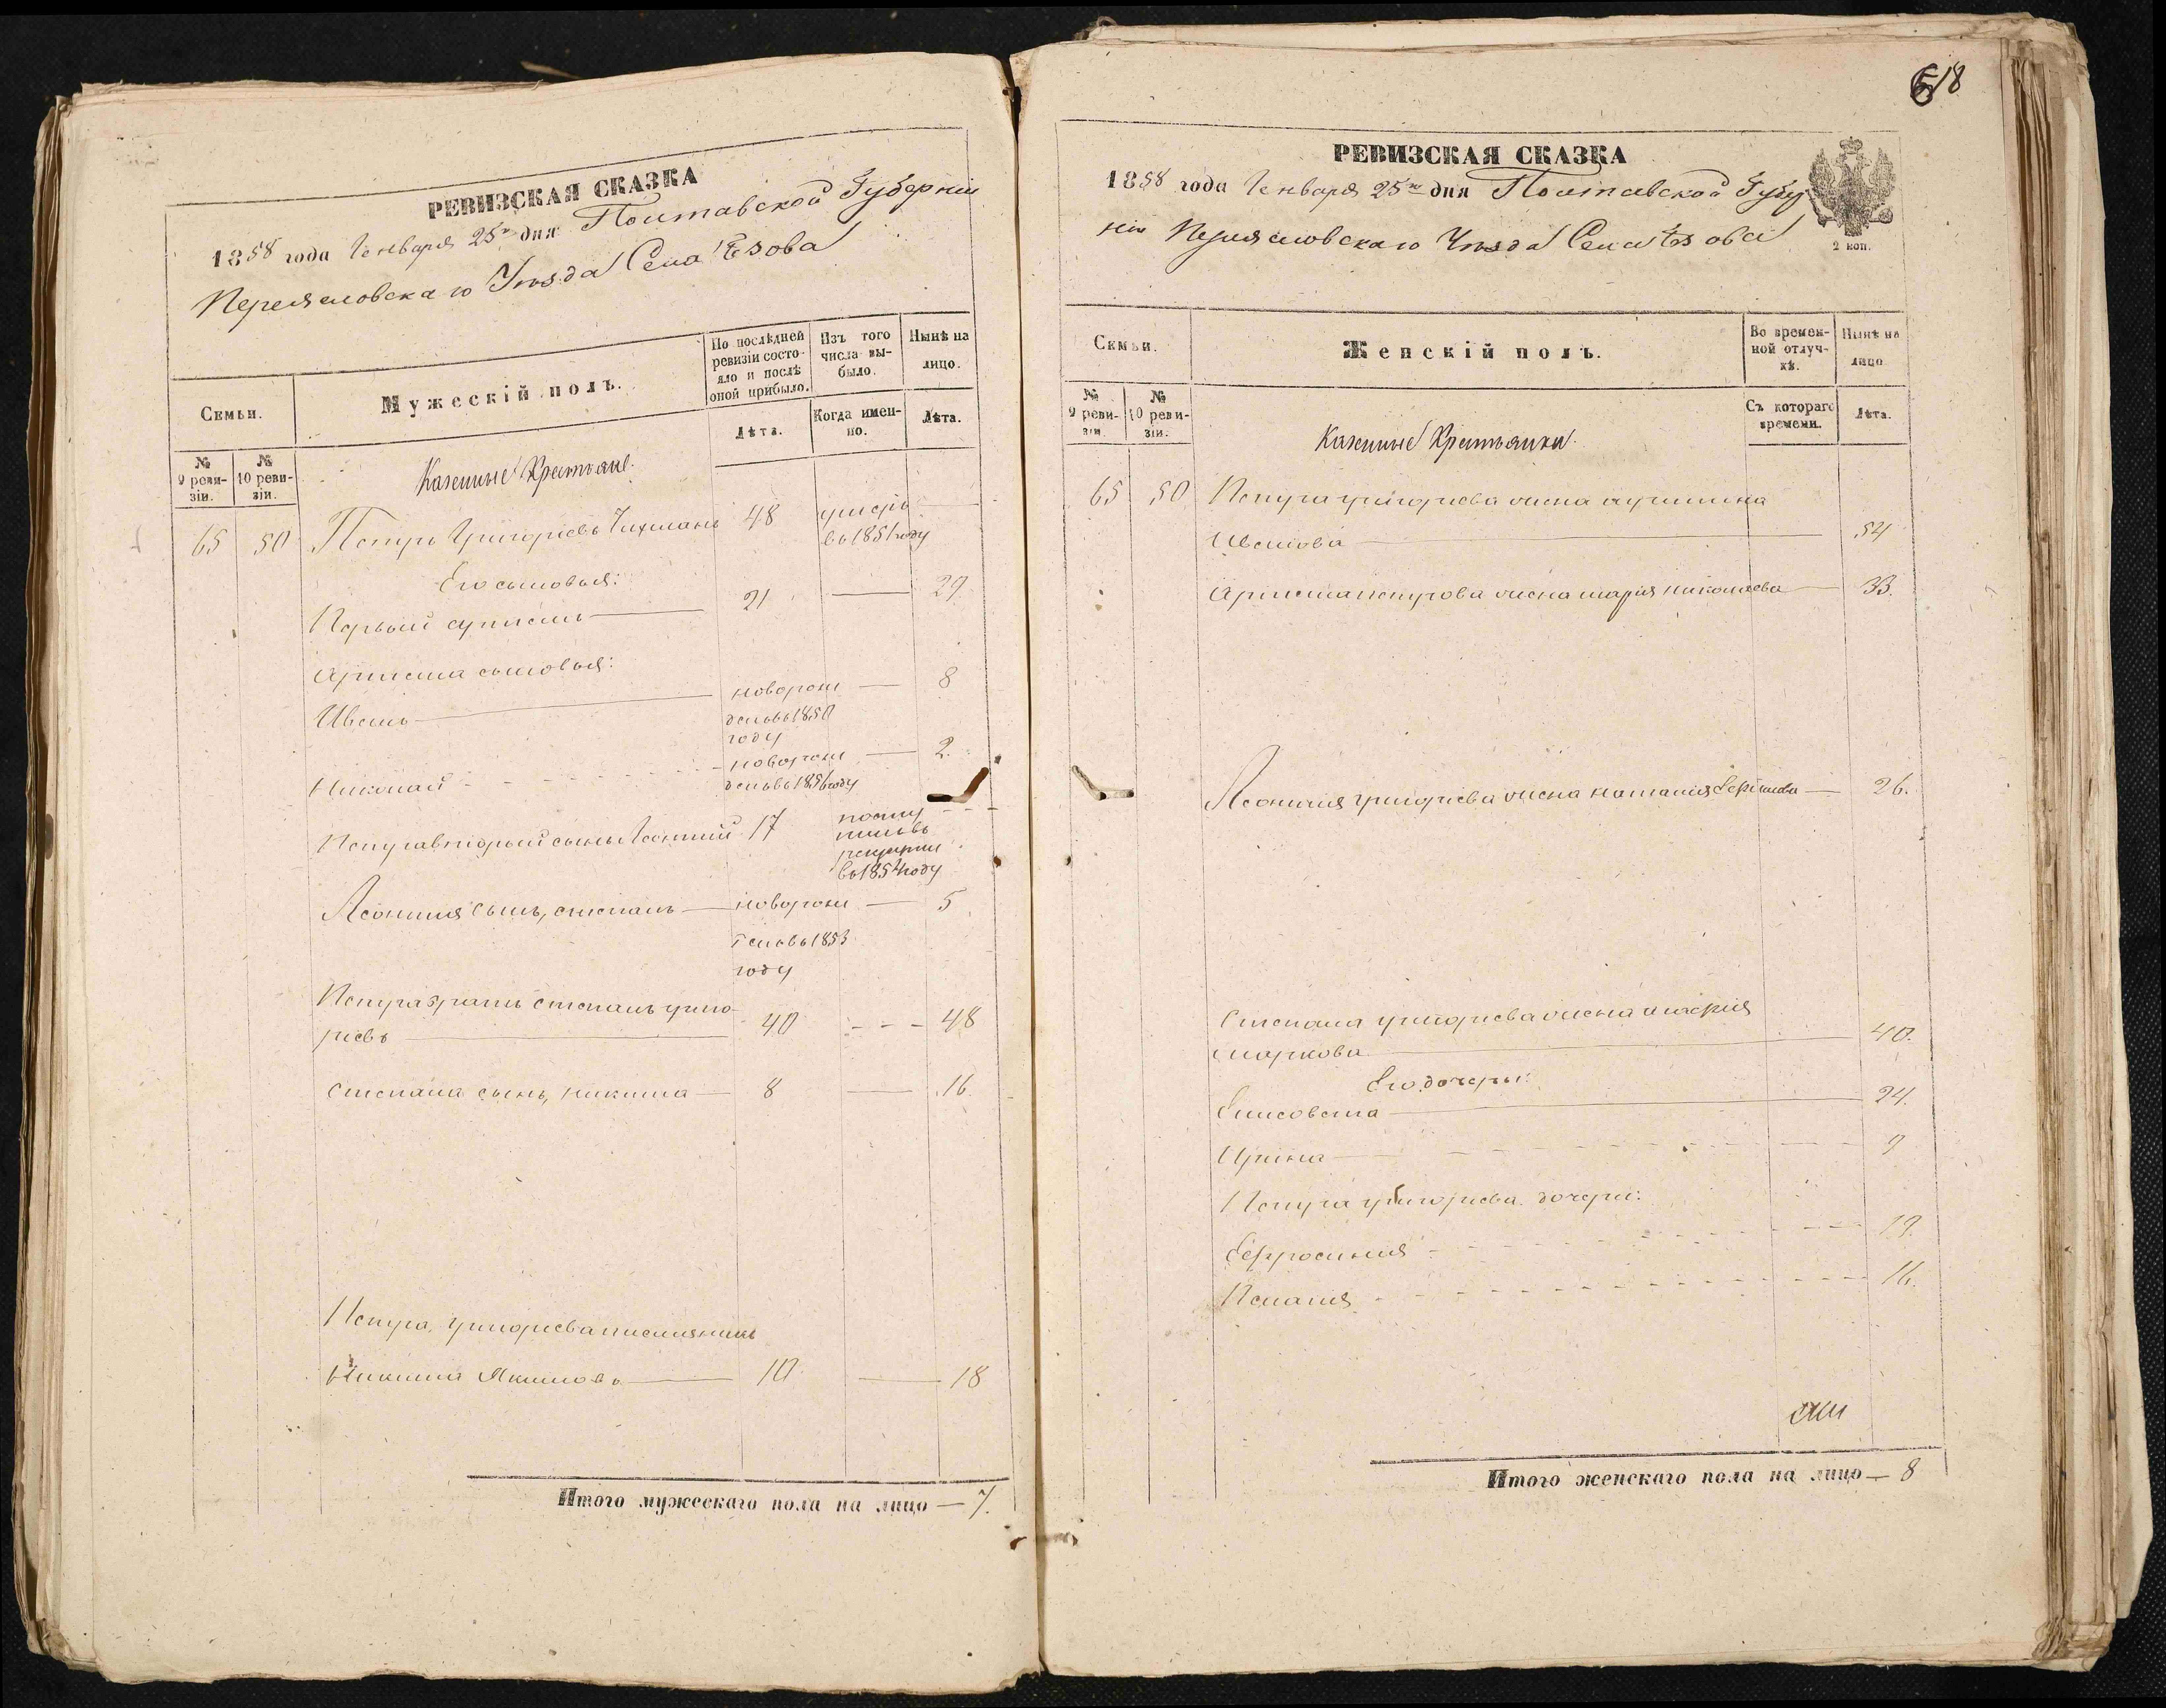 РЕВИЗСКАЯ СКАЗКА
1858 года Генваря 25го дня Полтавской Губерніи
Переяславскаго Уѣзда Села Ѣзова
Семьи.
Мужескій полъ.
По послѣдней ревизіи состояло и послѣ оной прибыло.
Изъ того числа выбыло.
Нынѣ на лицо.
№ 9 ревизіи.
№ 10 ревизіи.
Лѣта.
Когда именно.
Лѣта.
Казенные Крестьяне.
65 50 Петръ Григорьевъ 48 умеръ
въ 1851 году
Его сыновья:
Первый 21 — 29
сыновья:
Иванъ — новорож — 8
денъ въ 1850
году
Николай - новорож — 2.
денъ въ 1856 году
Петра второй сынъ Леонтий 17 посту
пилъ въ
рекруты
въ 1854 году
Леонтия сынъ, степанъ — новорож — 5
денъ въ 1853
году
Петра братъ степанъ григо-
рьевъ — 40 - - - 48
степана сынъ, никита — 8 — 16.
Петра, григорьева племянникъ
Никита Якимовъ — 10 — 18
Итого мужескаго пола на лицо — 7.
618
РЕВИЗСКАЯ СКАЗКА
1858 года Генваря 25го дня Полтавской Губер
ніи Переяславскаго Уѣзда Села Ѣзова
2 коп.
Семьи.
Женскій полъ.
Во временной отлучкѣ.
Нынѣ на лицо
№ 9 ревизіи.
№ 10 ревизіи.
Съ котораго времени.
Лѣта.
Казенные Крестьянки.
65 50 Петра григорьева жена
Иванова — 54
петрова жена мария николаева — 33.
Леонтия григорьева жена наталия — 26.
Степана григорьева жена мария
маркова — 40.
Его дочери:
Елисовета — 24.
Ирина — 9
Петра григорьева дочери:
Ефросиния - 19.
Пелагия - 16.
Итого женскаго пола на лицо — 8